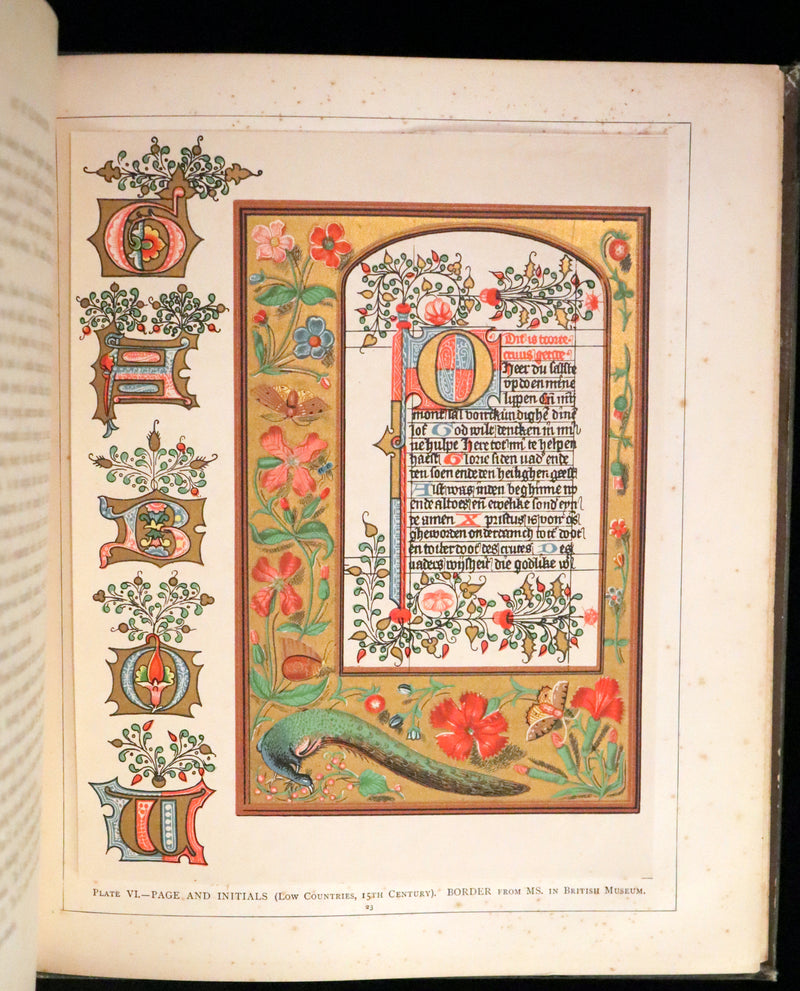 G
A
B
O
U
O
Dit is
Heer du
up doen mine
lippen
mont sal dighe dine
lof God wile dencken in mi
ne hulpe Here tot mi te helpen
haest Glorie si den vad ende
den soen ende den heilighen geest
Alst was inden beghinne
ende altoes en ewelike sonder
te amen Xpristus is voer
gheworden
en totter doot des cruces Des
vaders wijsheit die godlike
PLATE VI.—PAGE AND INITIALS (LOW COUNTRIES, 15TH CENTURY). BORDER FROM MS. IN BRITISH MUSEUM.
23